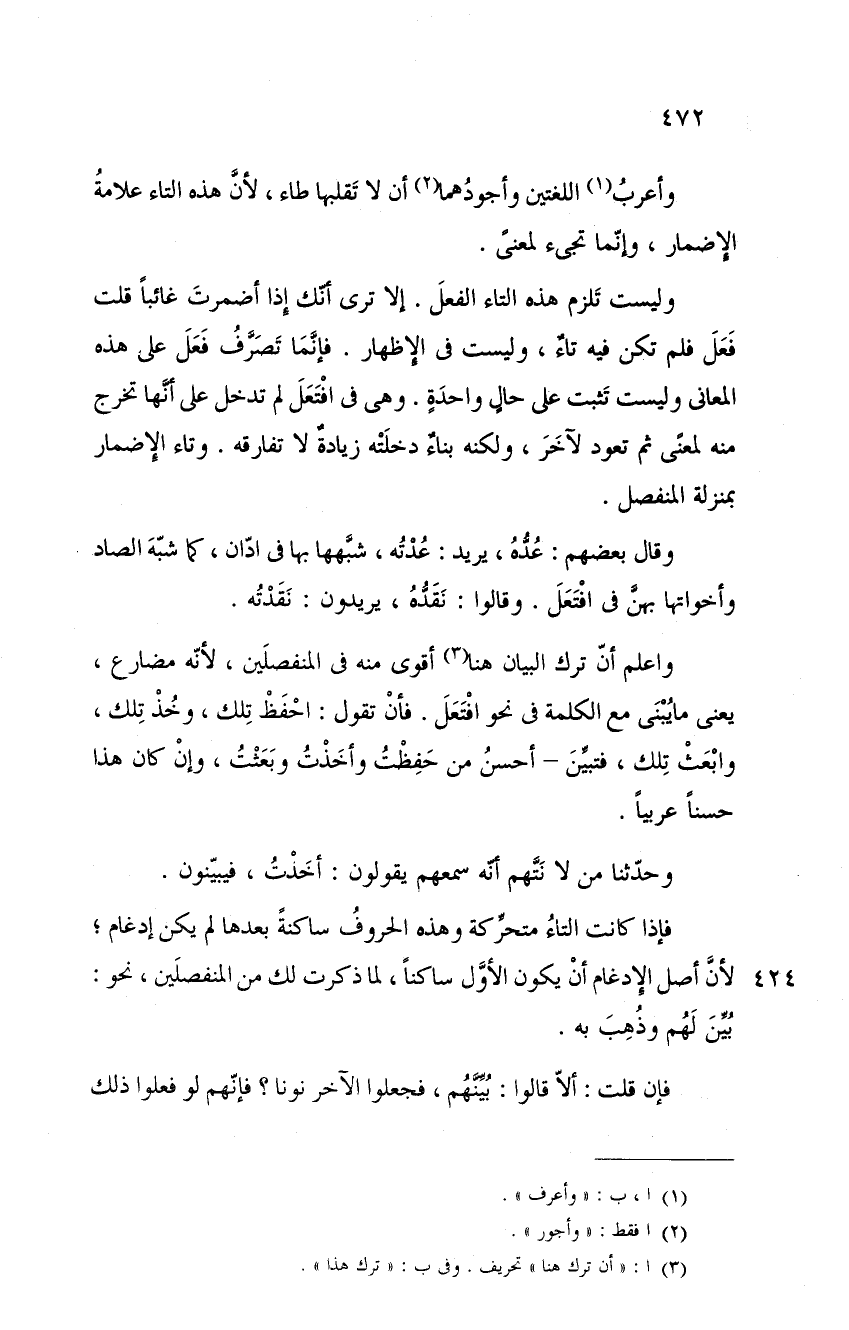 ٤٧٢
وأعربُ(١) اللغتين وأجودُهما(٢) أن لا تَقلبها طاء ، لأنَّ هذه التاء علامةُ
الإضمار ، وإنّما تجىء لمعنىً .
وليست تَلزم هذه التاء الفعلَ . إلا ترى أنّك إذا أضمرتَ غائباً قلت
فَعَلَ فلم تكن فيه تاءٌ ، وليست فى الإظهار . فإنَّمَا تَصَرَّفُ فَعَلَ على هذه
المعانى وليست تَثبت على حالٍ واحدَةٍ . وهى فى افْتَعَلَ لم تدخل على أنَّها تخرج
منه لمعنًى ثم تعود لآخَرَ ، ولكنه بناءٌ دخلَتْه زيادةٌ لا تفارقه . وتاء الإضمار
بمنزلة المنفصل .
وقال بعضهم : عُدُّهُ ، يريد : عُدْتُه ، شبَّهها بها فى ادّان ، كما شبّهَ الصاد
وأخواتها بهنَّ فى افْتَعَلَ . وقالوا : نَقَدُّهُ ، يريدون : نَقَدْتُه .
واعلم أنّ ترك البيان هنا(٣) أقوى منه فى المنفصلَين ، لأنه مضارع ،
يعنى مايُبْنَى مع الكلمة فى نحو افْتَعَلَ . فأنْ تقول : احْفَظْ تِلك ، وخُذْ تِلك ،
وابْعَثْ تِلك ، فتبيِّنَ – أحسنُ من حَفِظْتُ وأخَذْتُ وبَعَثْتُ ، وإنْ كان هذا
حسناً عربياً .
وحدّثنا من لا نَتَّهم أنّه سمعهم يقولون : أخَذْتُ ، فيبيّنون .
فإذا كانت التاءُ متحرِّكة وهذه الحروفُ ساكنةً بعدها لم يكن إدغام ؛
٤٢٤ لأنَّ أصل الإدغام أنْ يكون الأوَّل ساكناً ، لما ذكرت لك من المنفصلَين ، نحو :
بُيِّنَ لَهُم وذُهِبَ به .
فإن قلت : ألاّ قالوا : بُيِّنَّهُم ، فجعلوا الآخر نونا ؟ فإنّهم لو فعلوا ذلك
(١) ا ، ب : « وأعرف » .
(٢) ا فقط : « وأجور » .
(٣) ا : « أن ترك هنا » تحريف . وفى ب : « ترك هذا » .